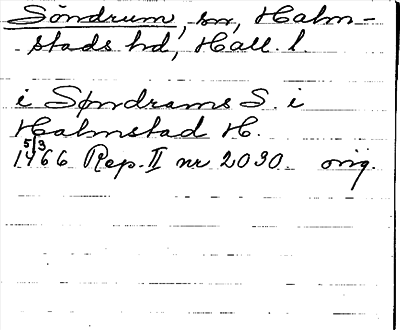 Söndrum, sn, Halm-
stads hd, Hall. l.
i Søndrams S. i
Halmstad H.
5/3
1466 Rep. II nr 2030 orig.